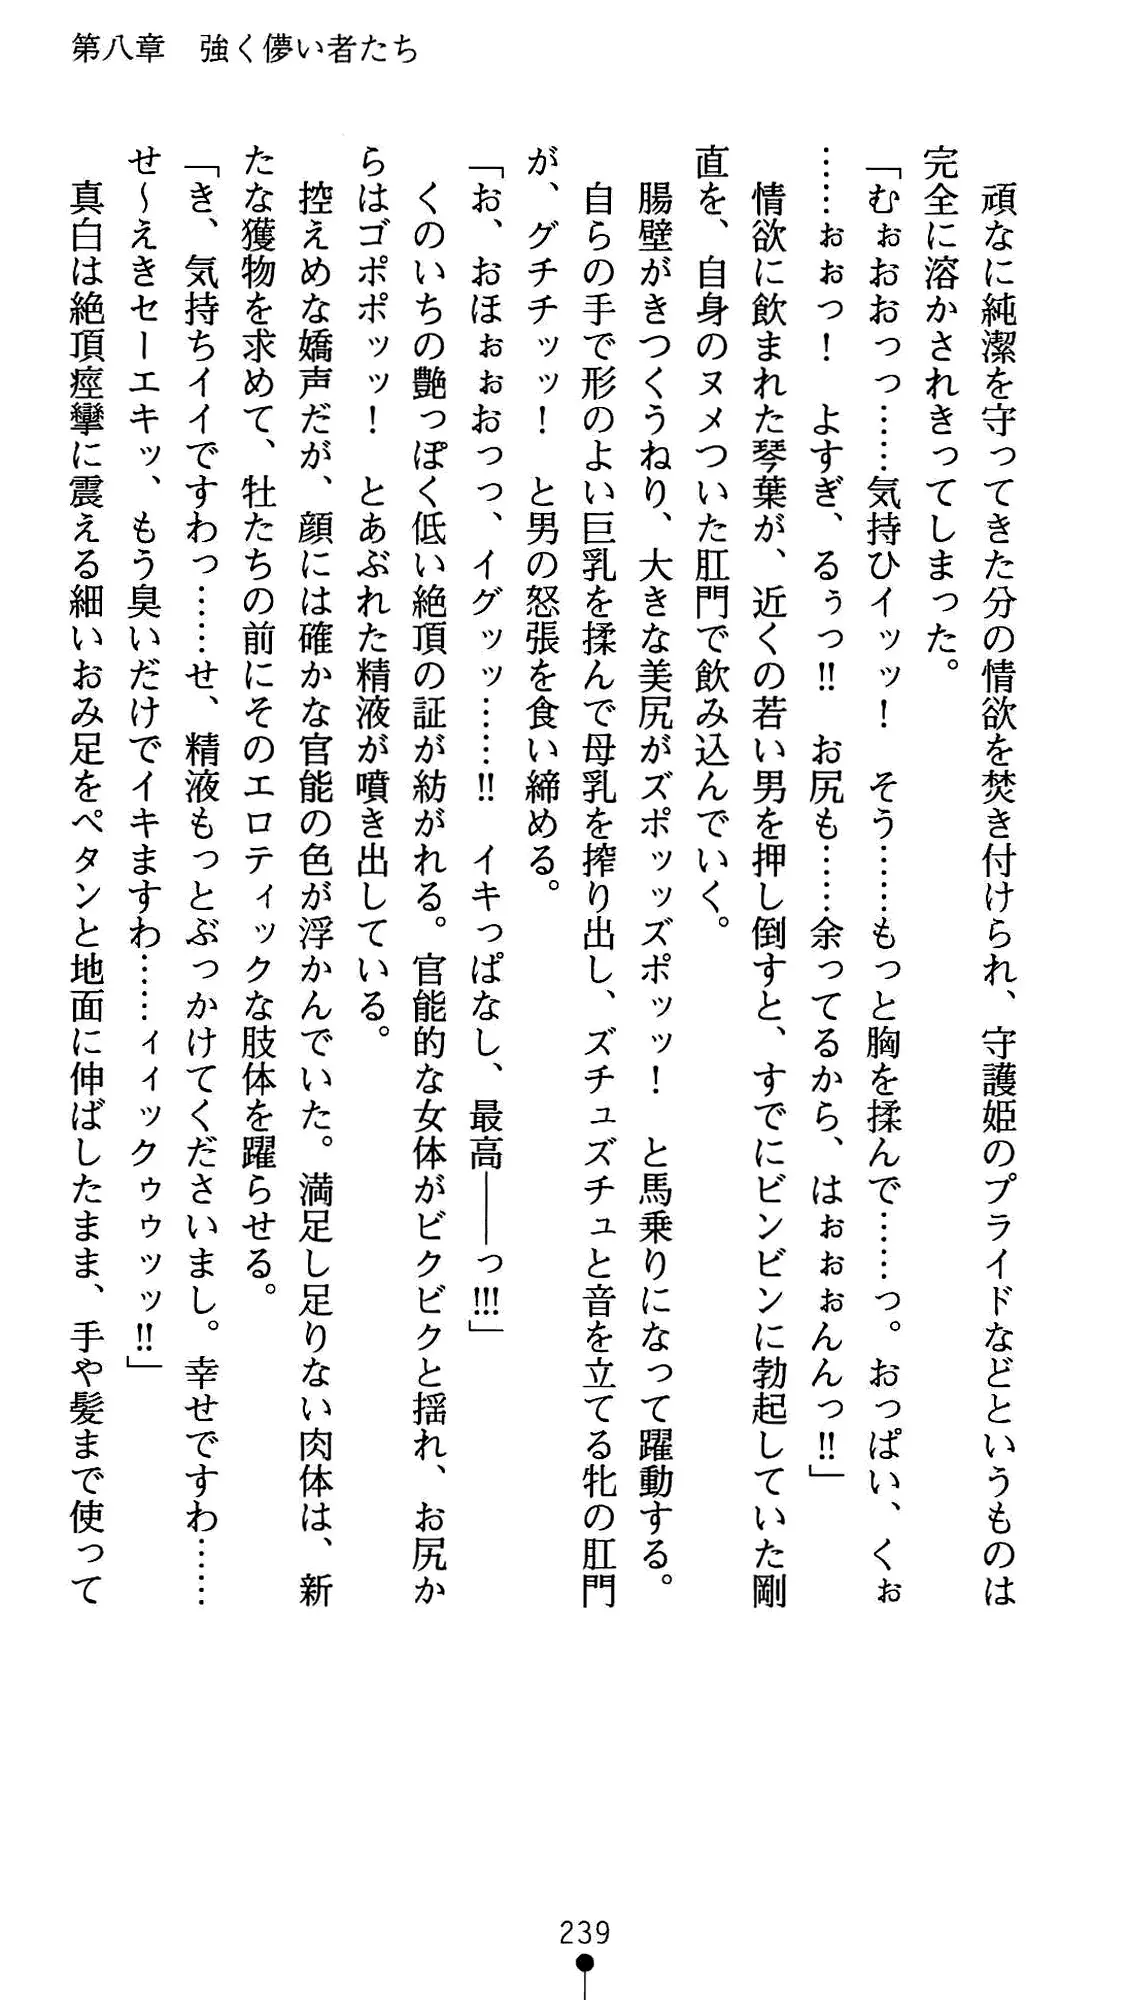 第八章　強く儚い者たち
　頑なに純潔を守ってきた分の情欲を焚き付けられ、守護姫のプライドなどというものは
完全に溶かされきってしまった。
「むぉおおっっ……気持ひイッッ！　そう……もっと胸を揉んで……っ。おっぱい、くぉ
……ぉぉっ！　よすぎ、るぅっ!!　お尻も……余ってるから、はぉぉぉんんっ!!」
　情欲に飲まれた琴葉が、近くの若い男を押し倒すと、すでにビンビンに勃起していた剛
直を、自身のヌメついた肛門で飲み込んでいく。
　腸壁がきつくうねり、大きな美尻がズポッッズポッッ！　と馬乗りになって躍動する。
　自らの手で形のよい巨乳を揉んで母乳を搾り出し、ズチュズチュと音を立てる牝の肛門
が、グチチッッ！　と男の怒張を食い締める。
「お、おほぉぉおっっ、イグッッ……!!　イキっぱなし、最高――っ!!!」
　くのいちの艶っぽく低い絶頂の証が紡がれる。官能的な女体がビクビクと揺れ、お尻か
らはゴポポッッ！　とあぶれた精液が噴き出している。
　控えめな嬌声だが、顔には確かな官能の色が浮かんでいた。満足し足りない肉体は、新
たな獲物を求めて、牡たちの前にそのエロティックな肢体を躍らせる。
「き、気持ちイイですわっ……せ、精液もっとぶっかけてくださいまし。幸せですわ……
せ～えきセーエキッ、もう臭いだけでイキますわ……ィィックゥゥッッ!!」
　真白は絶頂痙攣に震える細いおみ足をペタンと地面に伸ばしたまま、手や髪まで使って
239